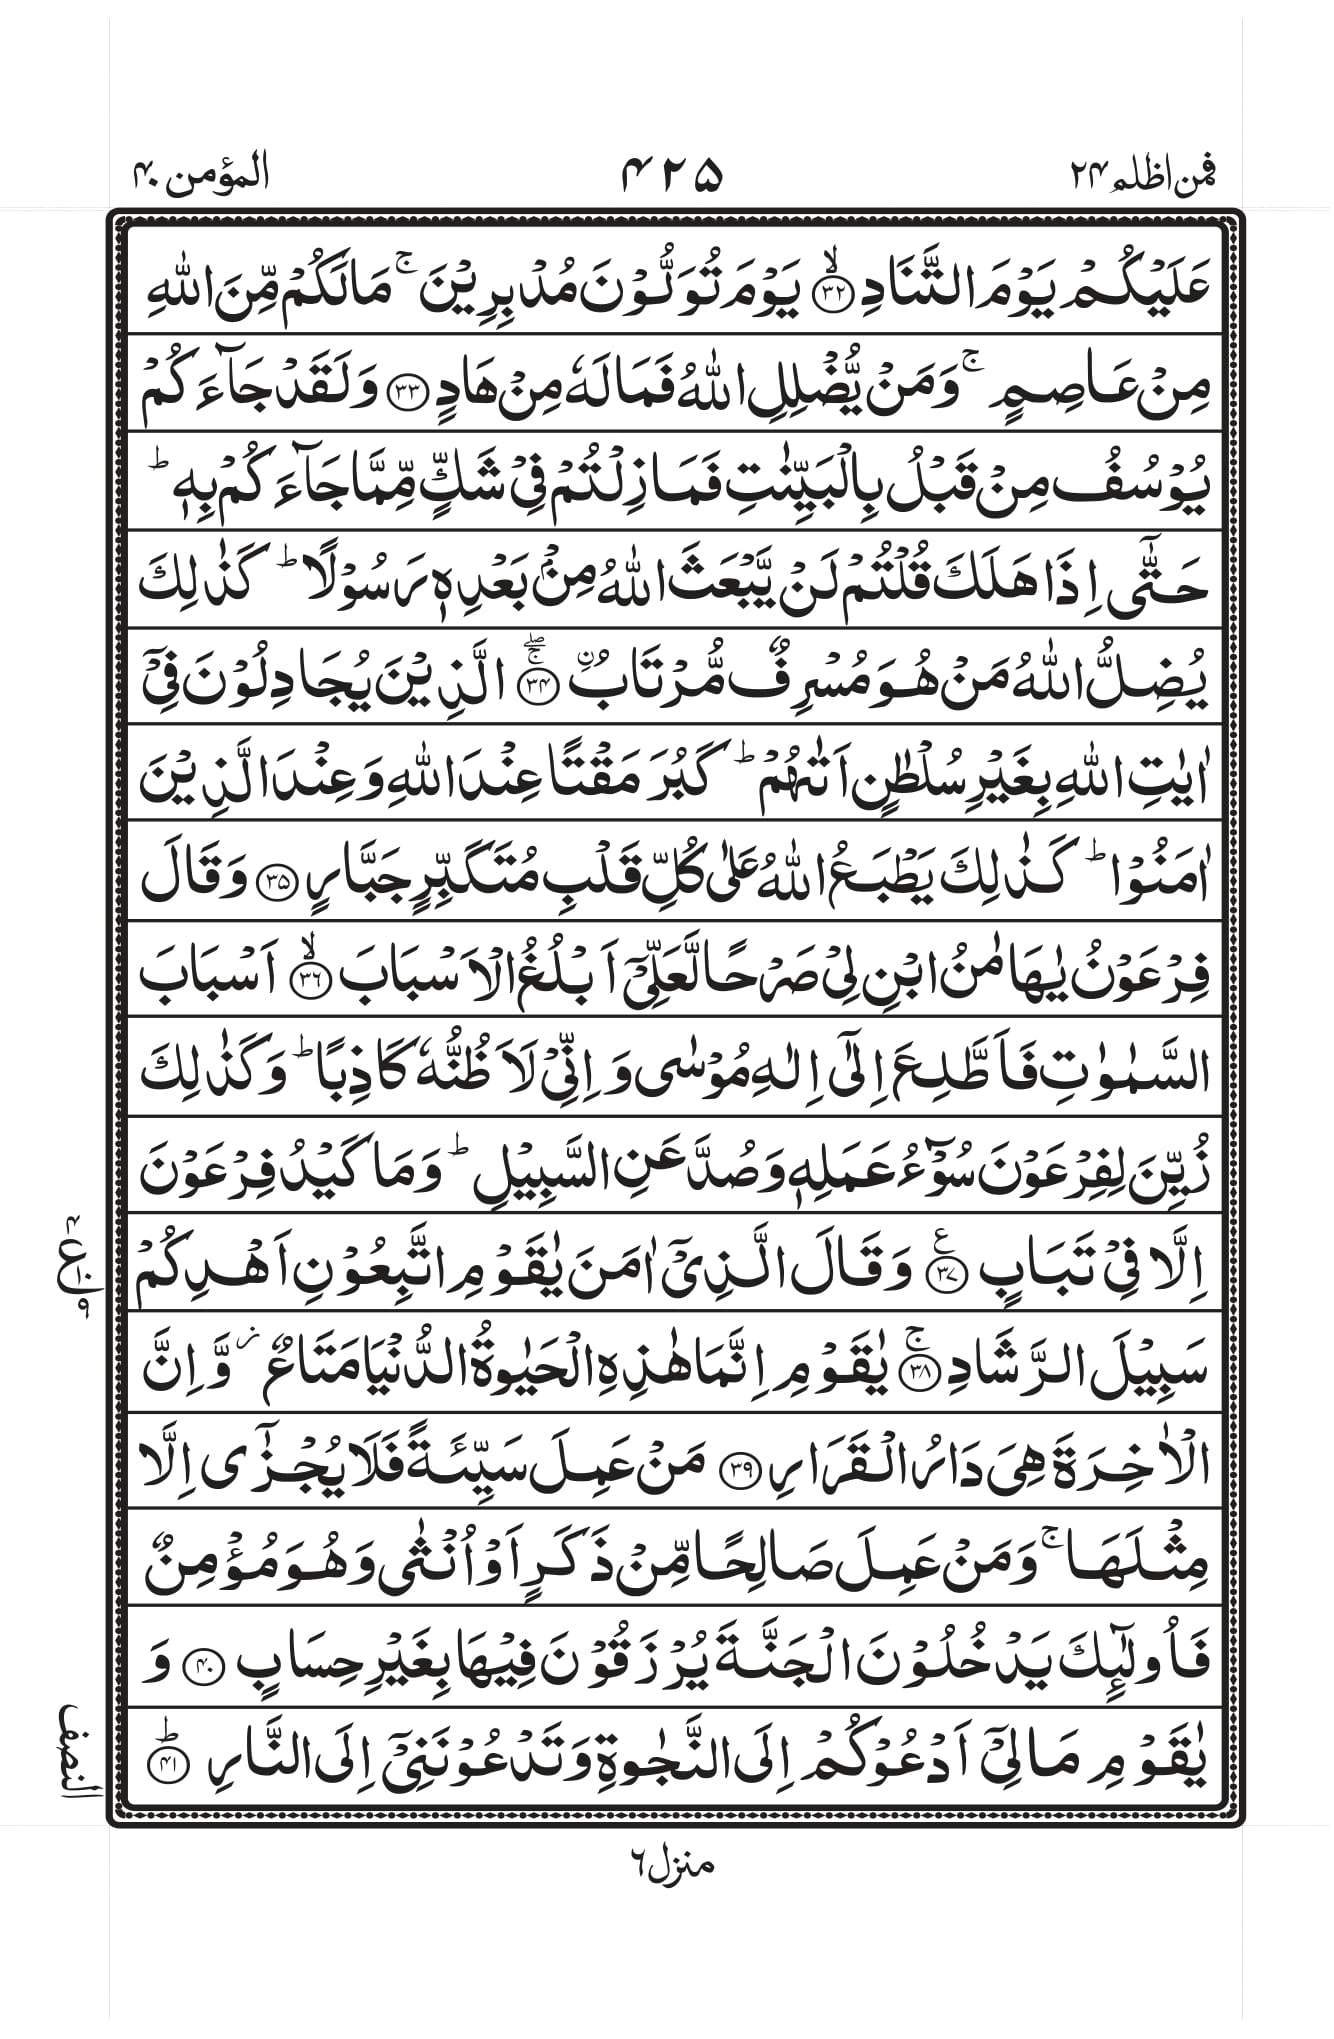 فمن اظلم ۲۴
۴۲۵
المؤمن ۴۰
عَلَيْكُمْ يَوْمَ التَّنَادِ ۙ﴿۳۲﴾ يَوْمَ تُوَلُّوْنَ مُدْبِرِيْنَ ۚ مَا لَكُمْ مِّنَ اللّٰهِ
مِنْ عَاصِمٍ ۚ وَمَنْ يُّضْلِلِ اللّٰهُ فَمَا لَهٗ مِنْ هَادٍ ﴿۳۳﴾ وَلَقَدْ جَآءَكُمْ
يُوْسُفُ مِنْ قَبْلُ بِالْبَيِّنٰتِ فَمَا زِلْتُمْ فِيْ شَكٍّ مِّمَّا جَآءَكُمْ بِهٖ ؕ
حَتّٰٓى اِذَا هَلَكَ قُلْتُمْ لَنْ يَّبْعَثَ اللّٰهُ مِنْۢ بَعْدِهٖ رَسُوْلًا ؕ كَذٰلِكَ
يُضِلُّ اللّٰهُ مَنْ هُوَ مُسْرِفٌ مُّرْتَابُ ۨ ۚۖ﴿۳۴﴾ الَّذِيْنَ يُجَادِلُوْنَ فِيْٓ
اٰيٰتِ اللّٰهِ بِغَيْرِ سُلْطٰنٍ اَتٰىهُمْ ؕ كَبُرَ مَقْتًا عِنْدَ اللّٰهِ وَعِنْدَ الَّذِيْنَ
اٰمَنُوْا ؕ كَذٰلِكَ يَطْبَعُ اللّٰهُ عَلٰى كُلِّ قَلْبِ مُتَكَبِّرٍ جَبَّارٍ ﴿۳۵﴾ وَقَالَ
فِرْعَوْنُ يٰهَامٰنُ ابْنِ لِيْ صَرْحًا لَّعَلِّيْٓ اَبْلُغُ الْاَسْبَابَ ۙ﴿۳۶﴾ اَسْبَابَ
السَّمٰوٰتِ فَاَطَّلِعَ اِلٰٓى اِلٰهِ مُوْسٰى وَاِنِّيْ لَاَظُنُّهٗ كَاذِبًا ؕ وَكَذٰلِكَ
زُيِّنَ لِفِرْعَوْنَ سُوْٓءُ عَمَلِهٖ وَصُدَّ عَنِ السَّبِيْلِ ؕ وَمَا كَيْدُ فِرْعَوْنَ
اِلَّا فِيْ تَبَابٍ ﴿۳۷﴾ع وَقَالَ الَّذِيْٓ اٰمَنَ يٰقَوْمِ اتَّبِعُوْنِ اَهْدِكُمْ
سَبِيْلَ الرَّشَادِ ۚ﴿۳۸﴾ يٰقَوْمِ اِنَّمَا هٰذِهِ الْحَيٰوةُ الدُّنْيَا مَتَاعٌ ز وَّاِنَّ
الْاٰخِرَةَ هِيَ دَارُ الْقَرَارِ ﴿۳۹﴾ مَنْ عَمِلَ سَيِّئَةً فَلَا يُجْزٰٓى اِلَّا
مِثْلَهَا ۚ وَمَنْ عَمِلَ صَالِحًا مِّنْ ذَكَرٍ اَوْ اُنْثٰى وَهُوَ مُؤْمِنٌ
فَاُولٰٓئِكَ يَدْخُلُوْنَ الْجَنَّةَ يُرْزَقُوْنَ فِيْهَا بِغَيْرِ حِسَابٍ ﴿۴۰﴾ وَ
يٰقَوْمِ مَا لِيْٓ اَدْعُوْكُمْ اِلَى النَّجٰوةِ وَتَدْعُوْنَنِيْٓ اِلَى النَّارِ ؕ﴿۴۱﴾
ع
النصف
منزل ۶